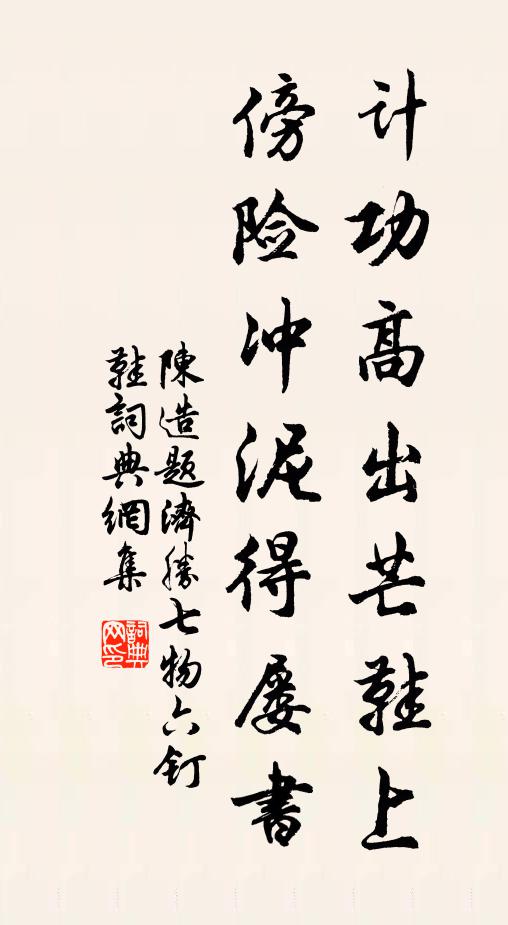 计功高出芒鞋上
傍险冲泥得屡书
陳造题濟勝七物六钉
鞋詞典網集
詞典网印